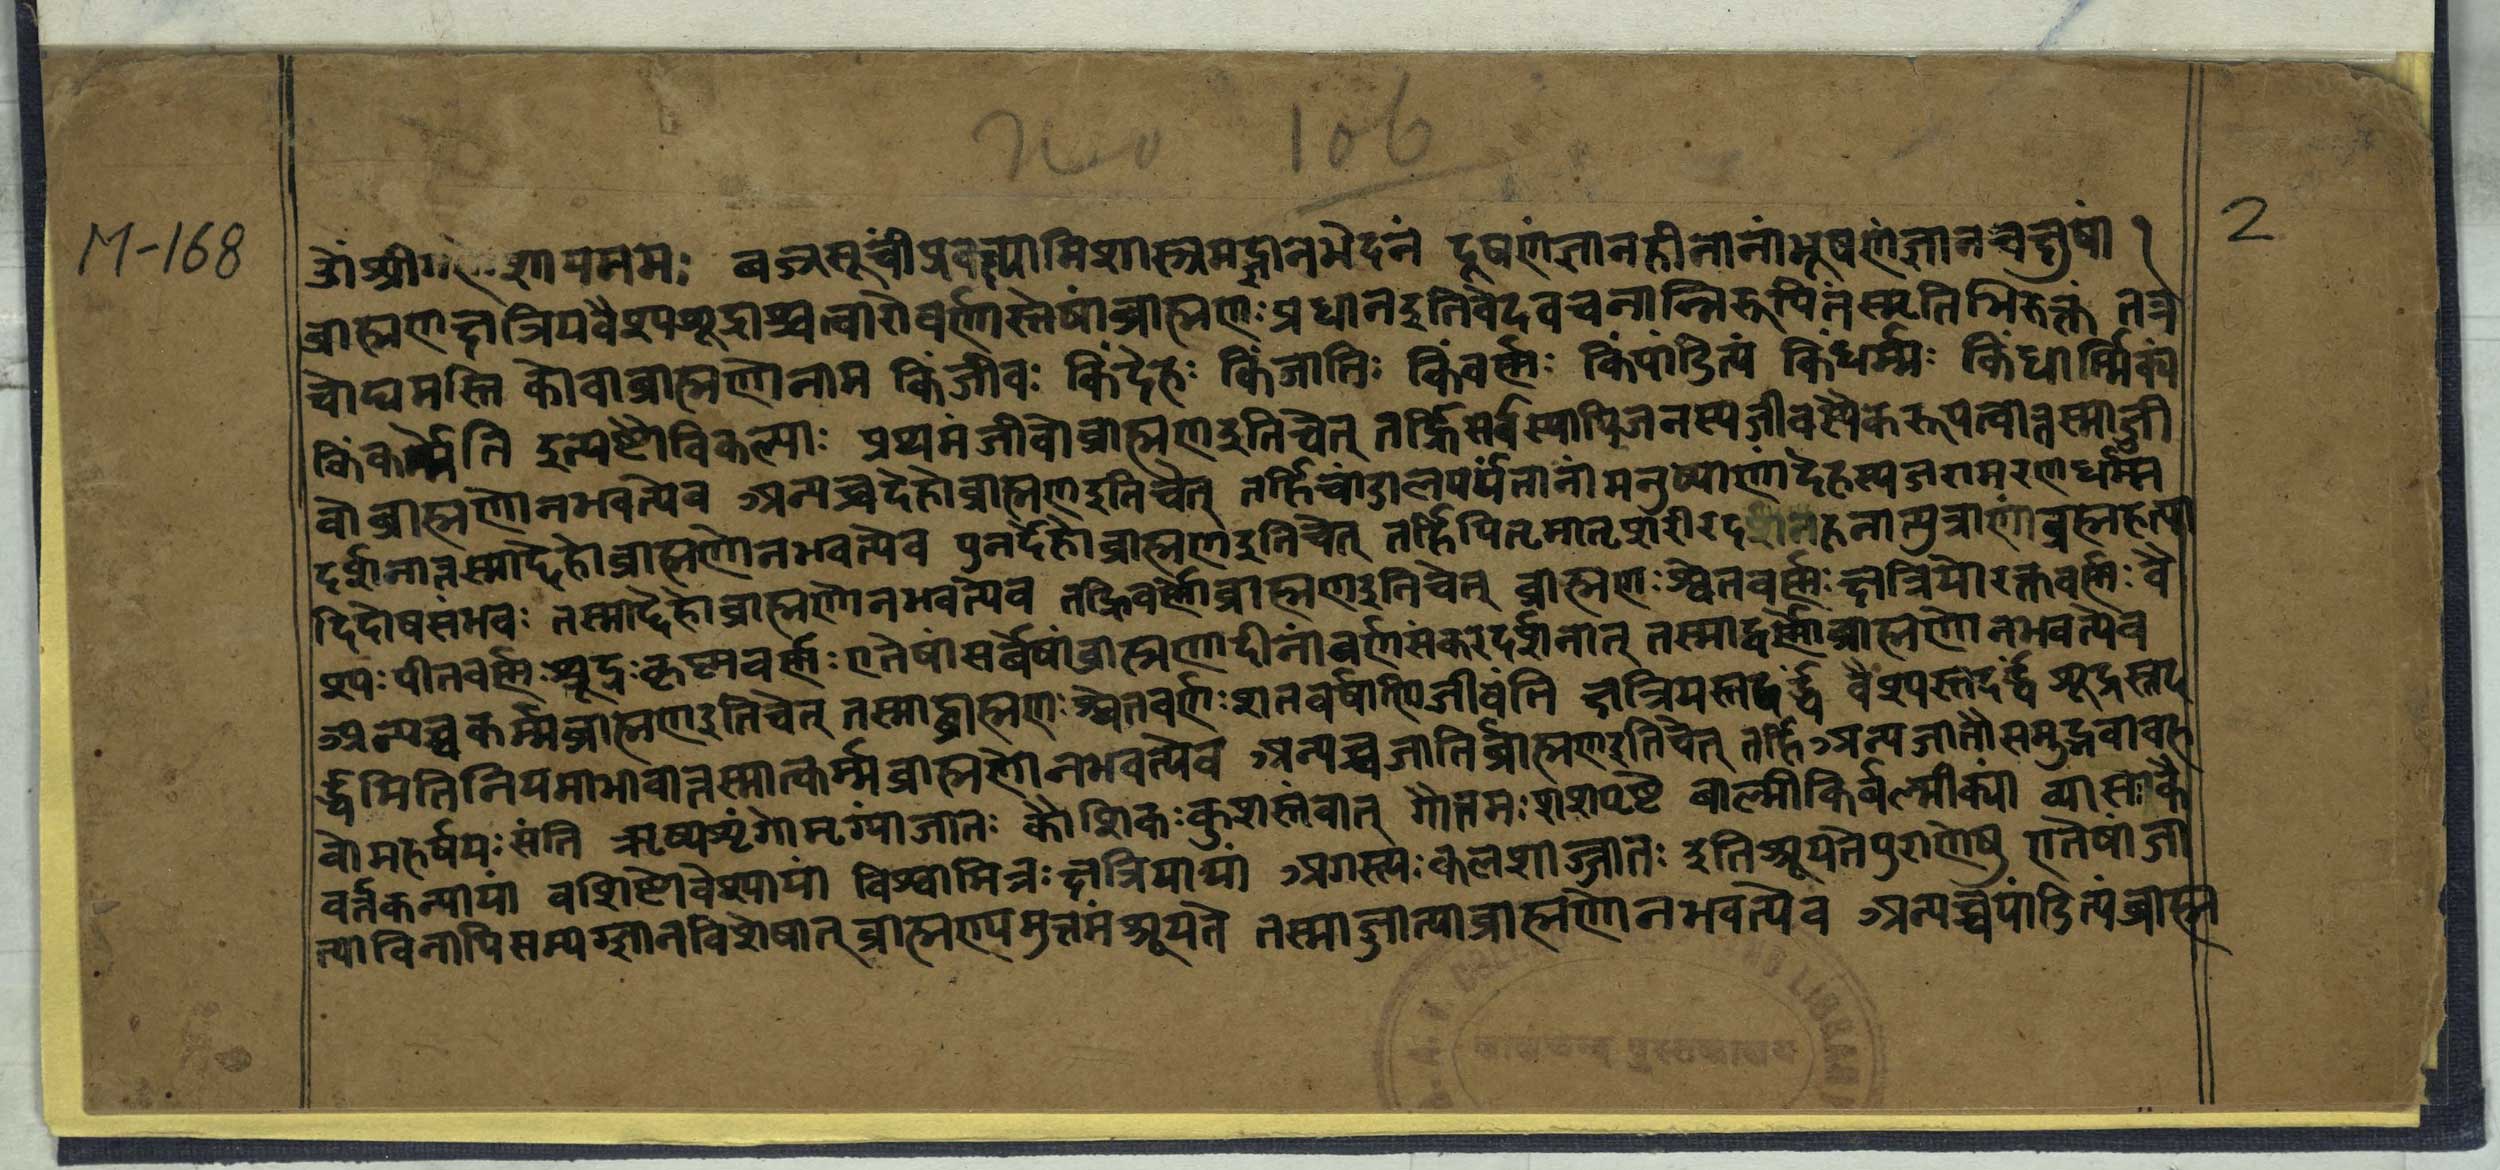 no 106
M-168
2
ॐश्रीगणेशायनमः बज्रसूचीप्रवक्ष्यामिशास्त्रमज्ञानभेदनं दूषणंज्ञानहीनानांभूषणंज्ञानचक्षुषां १
ब्राह्मणक्षत्रियवैश्यशूद्राश्चत्वारोवर्णास्तेषांब्राह्मणःप्रधानइतिवेदवचनान्निरूपितंस्मृतिभिरुक्तं तत्र
चोद्यमस्ति कोवाब्राह्मणोनाम किंजीवः किंदेहः किंजातिः किंवर्णः किंपांडित्यं किंधर्म्मः किंधार्म्मिक्यं
किंकर्म्मेति इत्यष्टौविकल्पाः प्रथमंजीवोब्राह्मणइतिचेत् तर्हिसर्वस्यापिजनस्यजीवस्यैकरूपत्वात्तस्माज्जी
वोब्राह्मणोनभवत्येव अन्यच्चदेहोब्राह्मणइतिचेत् तर्हिचांडालपर्यंतानांमनुष्याणांदेहस्यजरामरणधर्म्म
दर्शनात्तस्माद्देहोब्राह्मणोनभवत्येव पुनर्देहोब्राह्मणइतिचेत् तर्हिपितृमातृशरीरदहनात्पुत्राणांब्रह्महत्या
दिदोषसंभवः तस्माद्देहोब्राह्मणोनभवत्येव तर्हिवर्णोब्राह्मणइतिचेत् ब्राह्मणःश्वेतवर्णःक्षत्रियोरक्तवर्णःवै
श्यःपीतवर्णःशूद्रःकृष्णवर्णःएतेषांसर्वेषांब्राह्मणादीनांवर्णसंकरदर्शनात् तस्माद्वर्णोब्राह्मणोनभवत्येव
अन्यच्चकर्म्मब्राह्मणइतिचेत् तस्माद्ब्राह्मणःश्वेतवर्णःशतवर्षाणिजीवंति क्षत्रियस्तदर्द्धं वैश्यस्तदर्द्धं शूद्रस्तद
र्द्धमितिनियमाभावात्तस्मात्कर्म्मब्राह्मणोनभवत्येव अन्यच्चजातिर्ब्राह्मणइतिचेत् तर्हिअन्यजातौसमुद्भवाबह
वोमहर्षयःसंति ऋष्यशृंगोमृग्यांजातः कौशिकःकुशस्तंवात् गौतमःशशपृष्टे वाल्मीकिर्वल्मीक्यां व्यासःकै
वर्त्तकन्यायां वशिष्टोवैश्यायां विश्वामित्रःक्षत्रियायां अगस्त्यःकलशाज्जातः इतिश्रूयतेपुराणेषु एतेषांजा
त्याविनापिसम्यग्ज्ञानविशेषात्ब्राह्मण्यमुत्तमंश्रूयते तस्माज्जात्याब्राह्मणोनभवत्येव अन्यच्चपांडित्यंब्राह्म